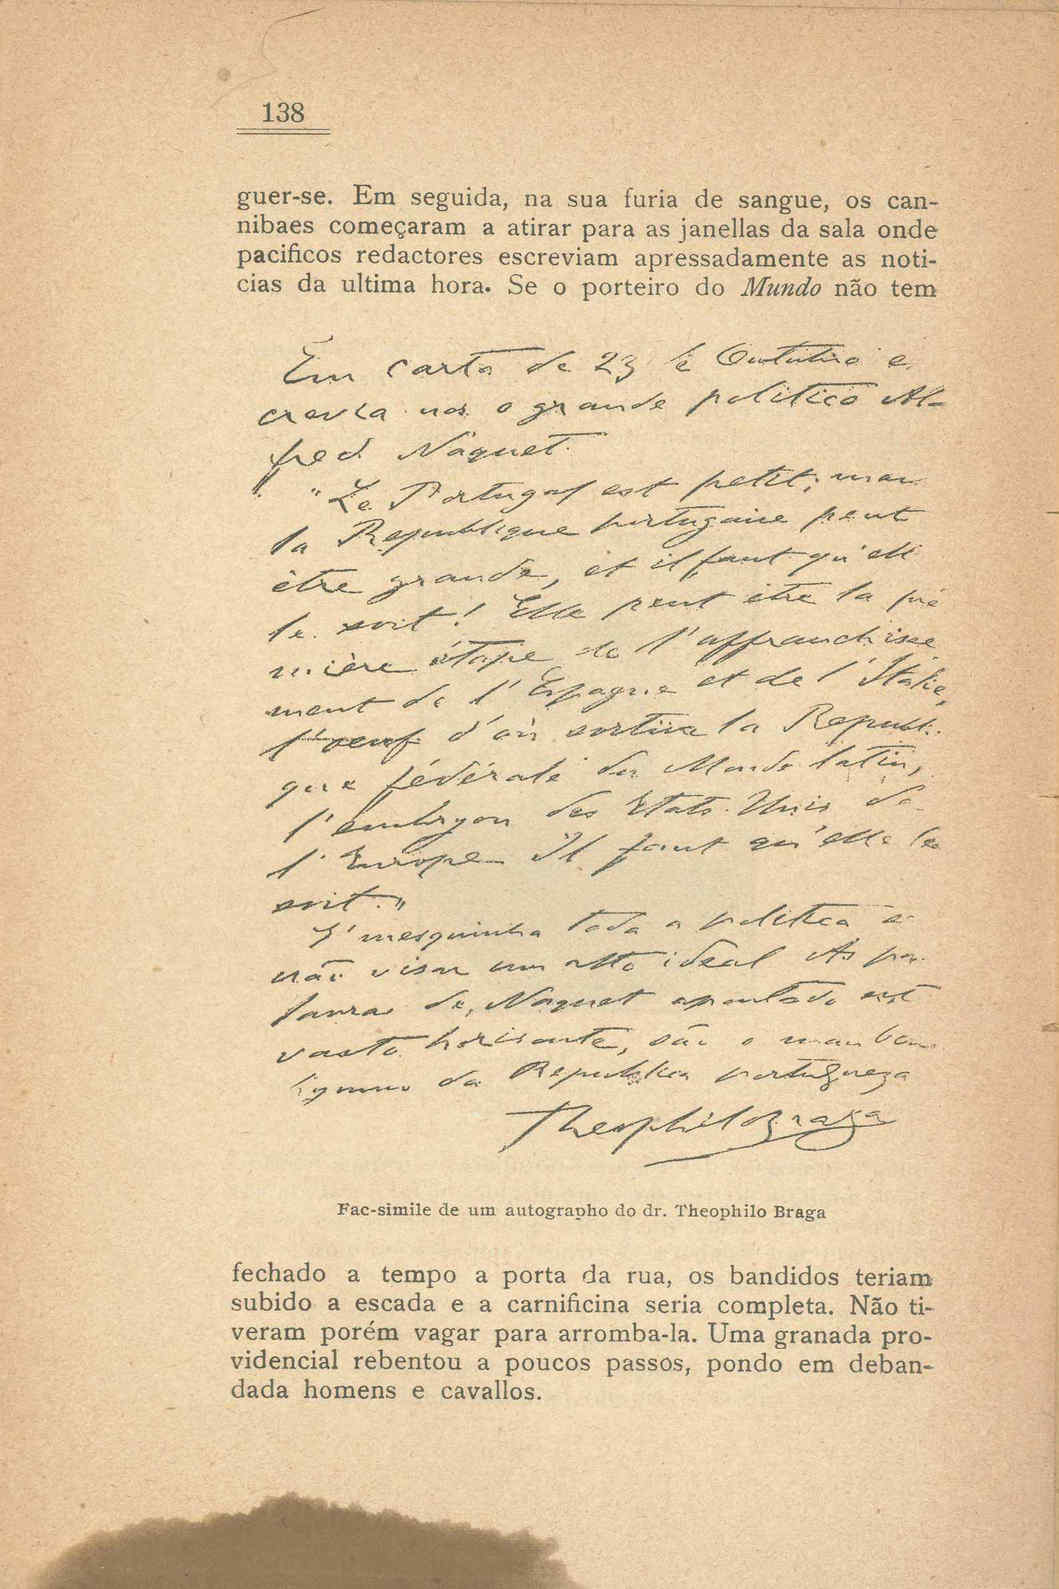 138
guer-se. Em seguida, na sua furia de sangue, os can-
nibaes começaram a atirar para as janellas da sala onde
pacificos redactores escreviam apressadamente as noti-
cias da ultima hora. Se o porteiro do Mundo não tem
Em carta de 23 de Outubro es
crevia-nos o grande politico Al-
fred Naquet.
"Le Portugal est petit; mais
la Republique portugaise peut
être grande, et il faut qu'elle
le soit! Elle peut être la pre
mière étape de l'affranchisse
ment de l'Espagne et de l'Italie,
l'oeuf d'où sortira la Republi-
que fédérale du Monde latin,
l'embryon des Etats-Unis de
l'Europe. Il faut qu'elle le
soit."
E' mesquinha toda a politica a
não visar um alto ideal As pa
lavras de Naquet apontado este
vasto horisonte, são o mais bom
hymno da Republica portugueza
Theophilo Braga
Fac-simile de um autographo do dr. Theophilo Braga
fechado a tempo a porta da rua, os bandidos teriam
subido a escada e a carnificina seria completa. Não ti-
veram porém vagar para arromba-la. Uma granada pro-
videncial rebentou a poucos passos, pondo em deban-
dada homens e cavallos.